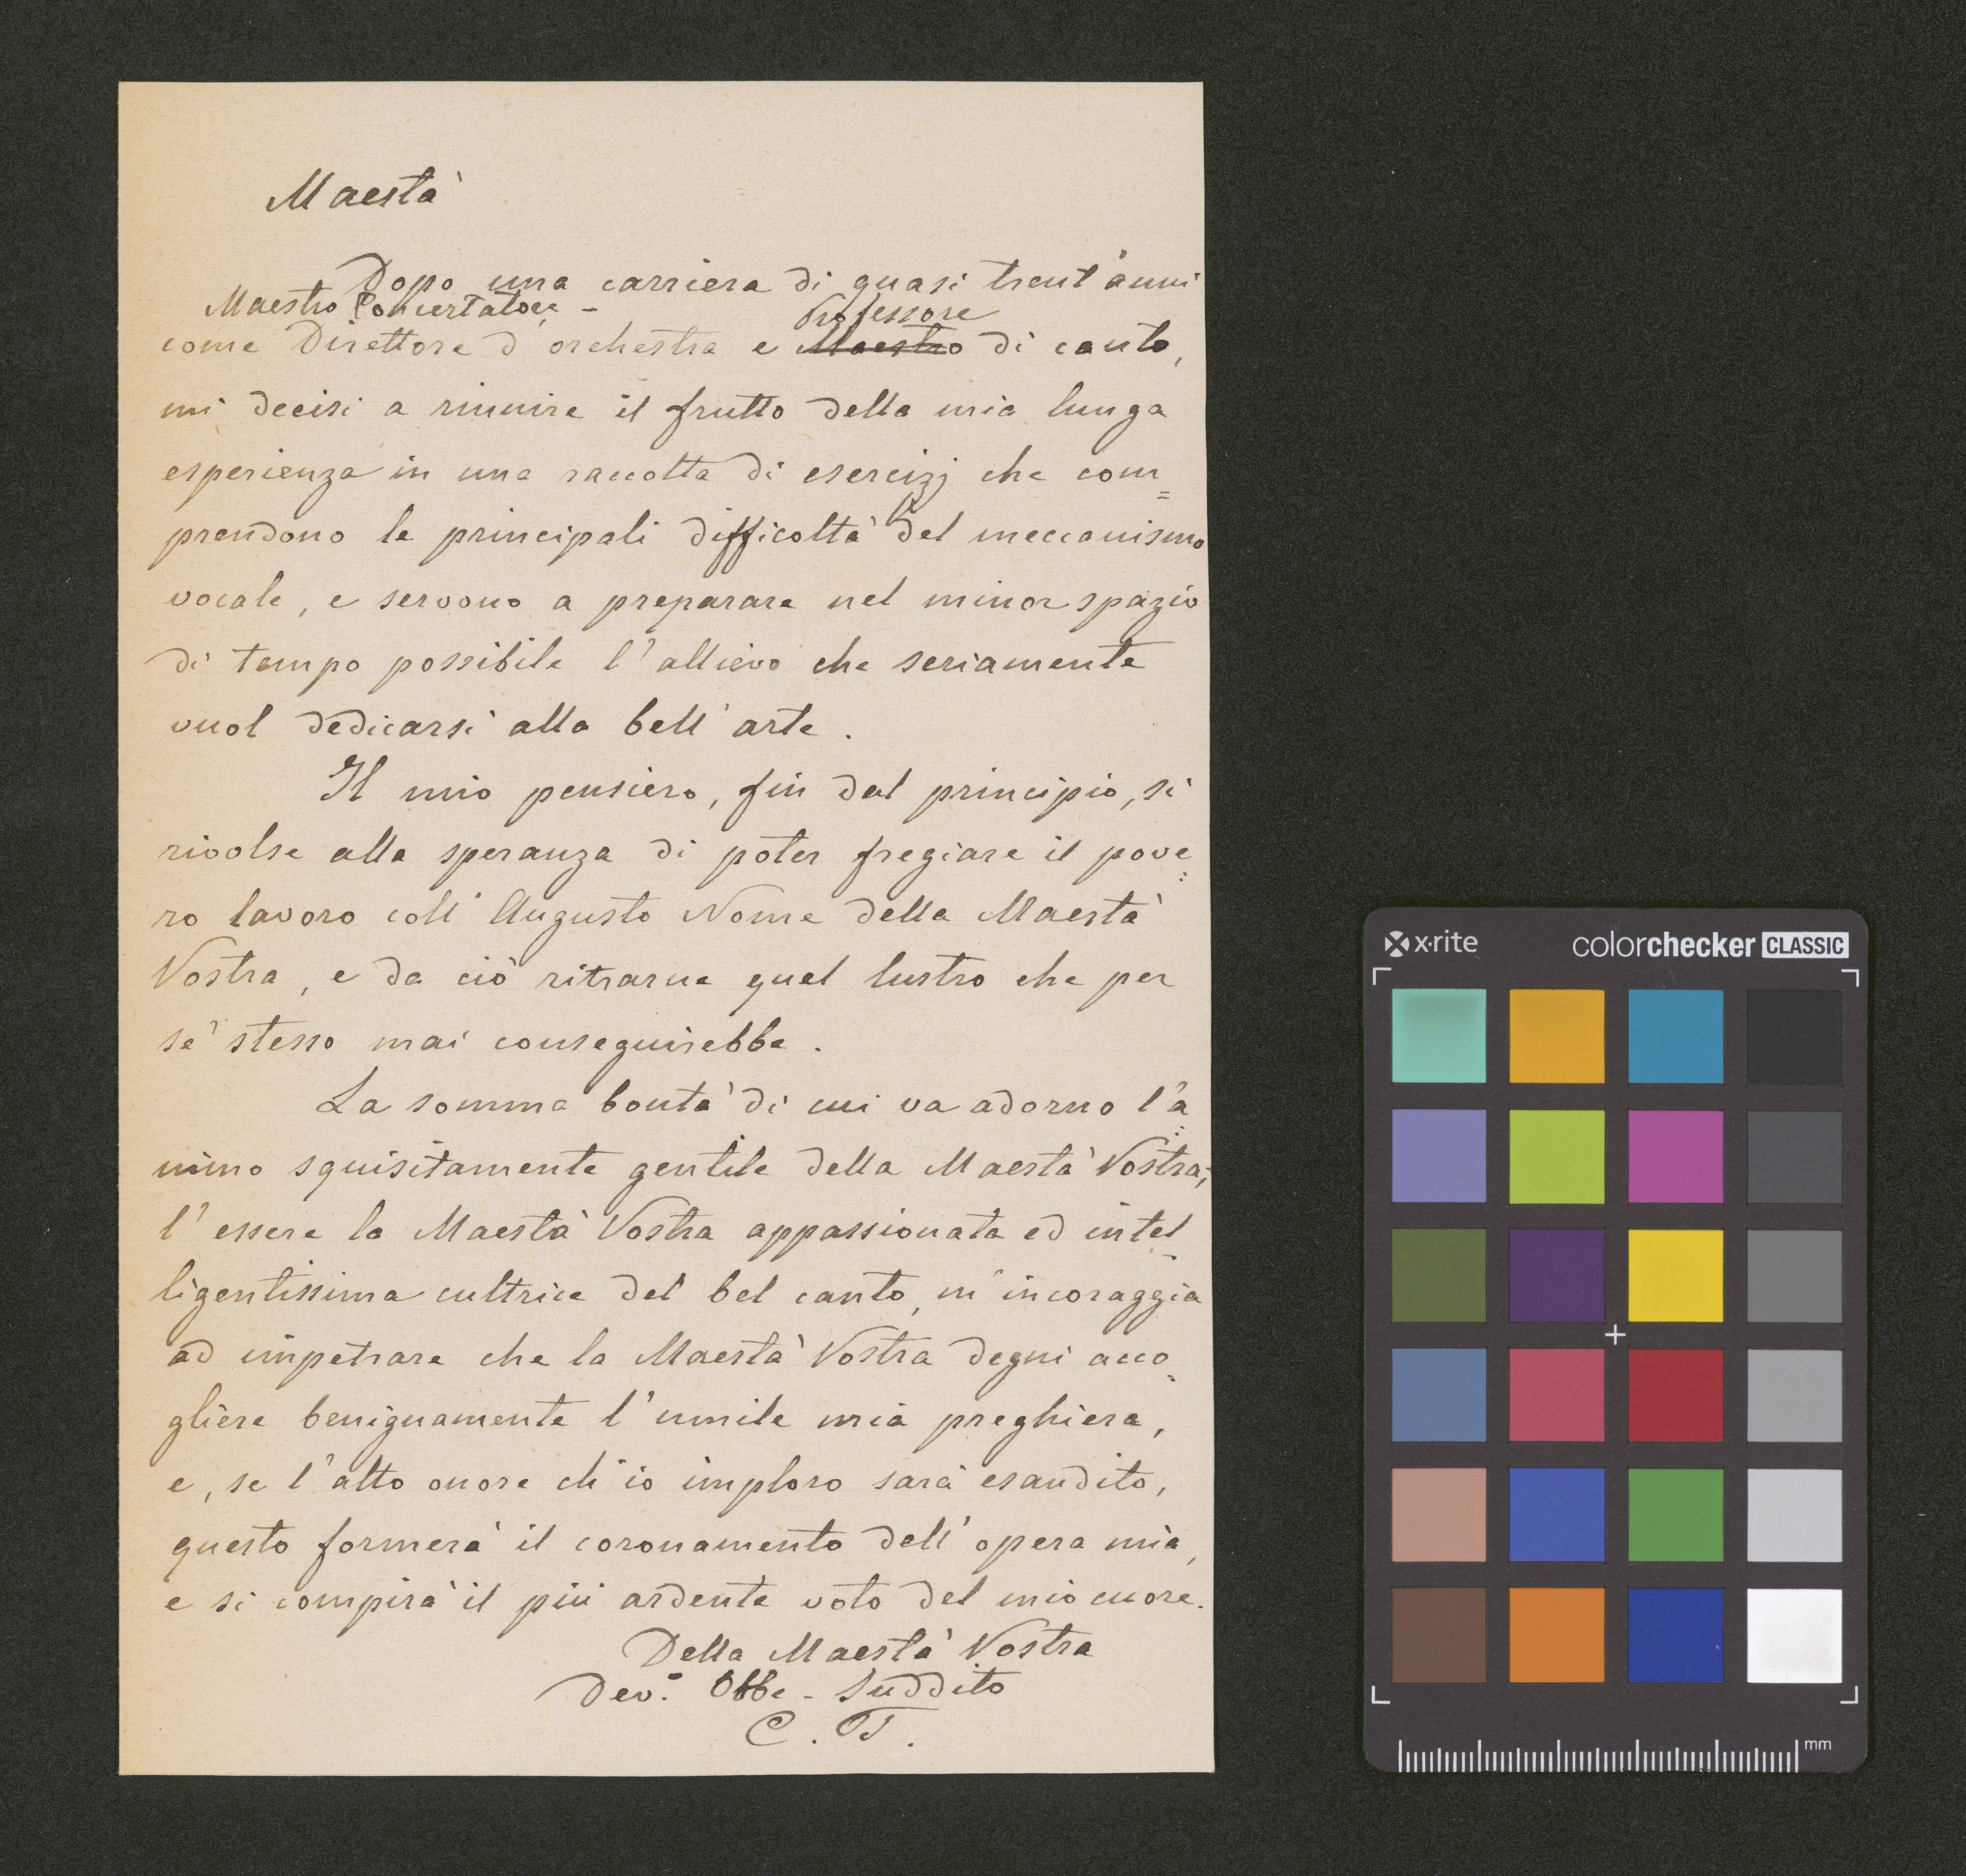 Maestà
Dopo una carriera di quasi trent'anni
Maestro Concertatore - Professore
come Direttore d'orchestra e Maestro di canto,
mi decisi a riunire il frutto della mia lunga
esperienza in una raccolta di esercizj che com=
prendono le principali difficoltà del meccanismo
vocale, e servono a preparare nel minor spazio
di tempo possibile l'allievo che seriamente
vuol dedicarsi alla bell'arte.
Il mio pensiero, fin dal principio, si
rivolse alla speranza di poter fregiare il pove=
ro lavoro coll'Augusto Nome della Maestà
Vostra, e da ciò ritrarne quel lustro che per
sè stesso mai conseguirebbe.
La somma bontà di cui va adorno l'a=
nimo squisitamente gentile della Maestà Vostra;
l'essere la Maestà Vostra appassionata ed intel-
ligentissima cultrice del bel canto, m'incoraggia
ad impetrare che la Maestà Vostra degni acco-
gliere benignamente l'umile mia preghiera,
e, se l'alto onore ch'io imploro sarà esaudito,
questo formerà il coronamento dell'opera mia,
e si compirà il più ardente voto del mio cuore.
Della Maestà Vostra
Dev.° Obbe - Suddito
C. T.
x·rite colorchecker CLASSIC
mm